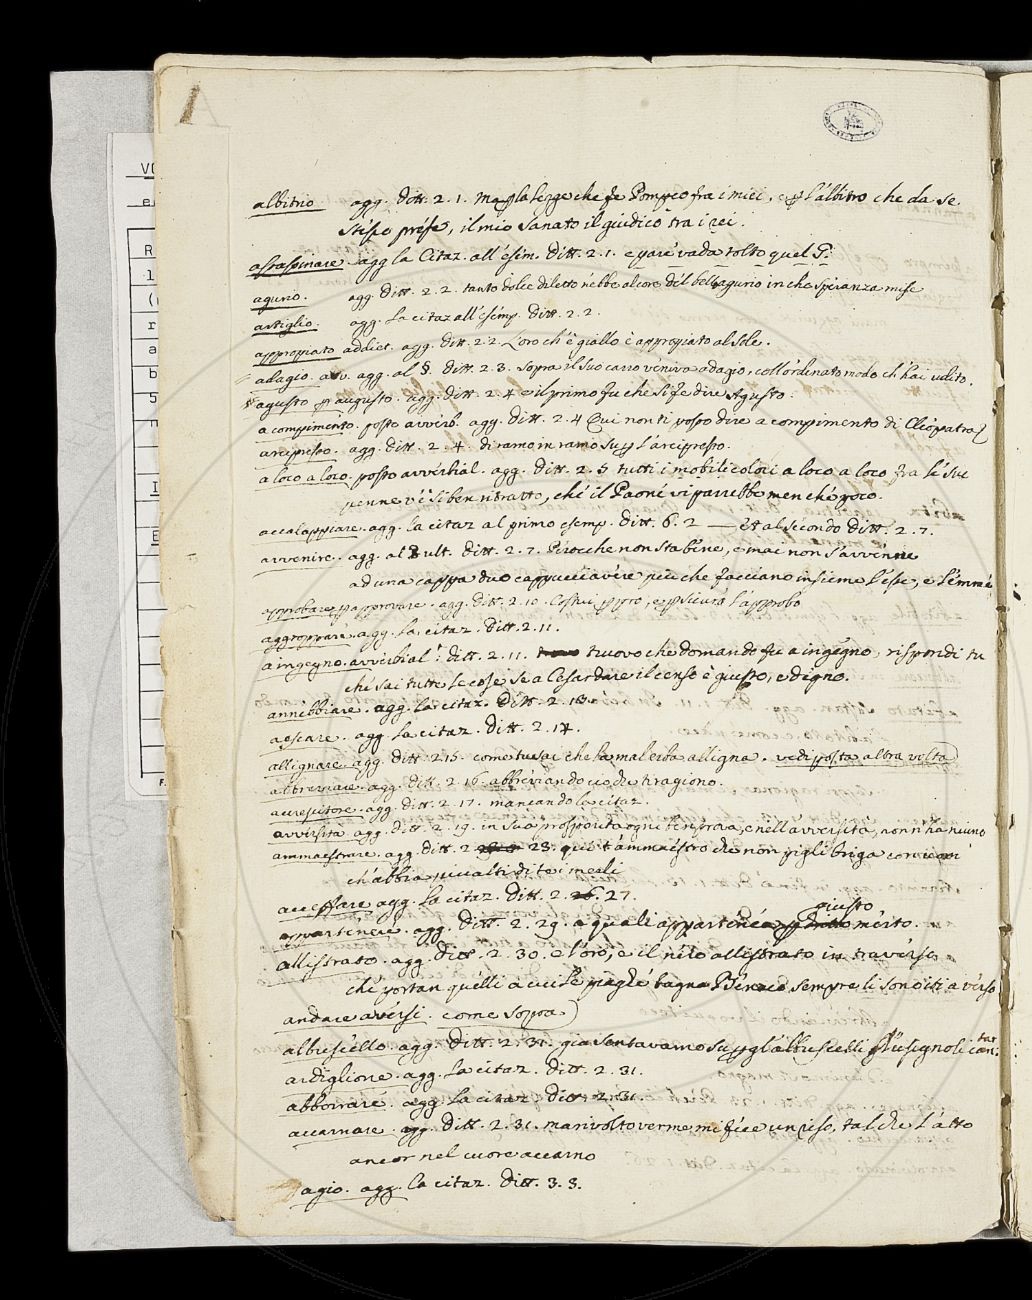 albitrio agg. Ditt. 2. 1. Ma la legge che fe Pompeo fra i miei, e l'albitro che da se
stesso prese, il mio Sanato il giudicò tra i rei.
agg. la Citaz. all'esem. Ditt. 2. 1. e pare vada tolto quel §.
agurio. agg. Ditt. 2. 2. tanto dolce diletto n'ebbe al core del bell'agurio in che speranza mise
artiglio. agg. la citaz. all'esemp. Ditt. 2. 2.
appropiato addiet. agg. Ditt. 2. 2. L'oro ch'è giallo è appropiato al Sole.
adagio. avv. agg. al §. Ditt. 2. 3. sopra il suo carro veniva adagio, coll'ordenato modo ch'hai udito.
agusto p augusto. agg. Ditt. 2. 4 e il primo fu che si fe dire Agusto.
a compimento. posto avverb. agg. Ditt. 2. 4 Qui non ti posso dire a compimento di Cleopatra
arcipresso. agg. Ditt. 2. 4. di ramo in ramo su p l'arcipresso.
a loco a loco. posto avverbial. agg. Ditt. 2. 5 tutti i mobili colori a loco a loco fra le sue
penne v'è sì ben ritratto, che il Paone vi parrebbe men che poco.
accalappiare. agg. la citaz al primo esemp. Ditt. 6. 2 — et al secondo Ditt. 2. 7.
avvenire. agg. al § ult. Ditt. 2. 7. Perocche non sta bene, e mai non s'avvenne
ad una cappa due cappucci avere
approbare p approvare. agg. Ditt. 2. 10.
aggroppare. agg. la citaz. Ditt. 2. 11.
a ingegno. avverbial. Ditt. 2. 11. nuovo che domando fu a ingegno, rispondi tu
che sai tutte le cose se a Cesar dare il censo è giusto, e degno.
annebbiare. agg. la citaz. Ditt. 2. 13.
aescare. agg. la citaz. Ditt. 2. 14.
allignare. agg. Ditt. 2. 15. come tu sai che la mal erba alligna. vedi posta altra volta
abbreviare. agg. Ditt. 2. 16. abbreviando ciò che ti ragiono.
accrescitore. agg. Ditt. 2. 17. mancando la citaz.
avversità agg. Ditt. 2. 19. in sua prosperità ogni tenprova, e nell'avversità, non n'ha niuno
ammaestrare. agg. Ditt. 2. 23. qui t'ammaestro che non pigli briga con
ch'abbia
agg. la citaz. Ditt. 2. 27.
giusto
appartenere. agg. Ditt. 2. 29. a quali appartenea merito.
allistrato. agg. Ditt. 2. 30. e l'oro, e il nero allistrato in traverso
che portan quelli a cui le piagle bagna Benaco sempre li son iti a verso
andare a versi. come sopra
albuscello. agg. Ditt. 2. 31. già sentavamo su p gl'albuscelli gl'usignoli cantar
ardiglione. agg. la citaz. Ditt. 2. 31.
abborrare. agg. la citaz. Ditt. 2. 31.
accarnare. agg. Ditt. 2. 31. ma rivolto ver me mi fece un riso, tal che l'atto
ancor nel cuore accarno
agio. agg. la citaz. Ditt. 3. 3.